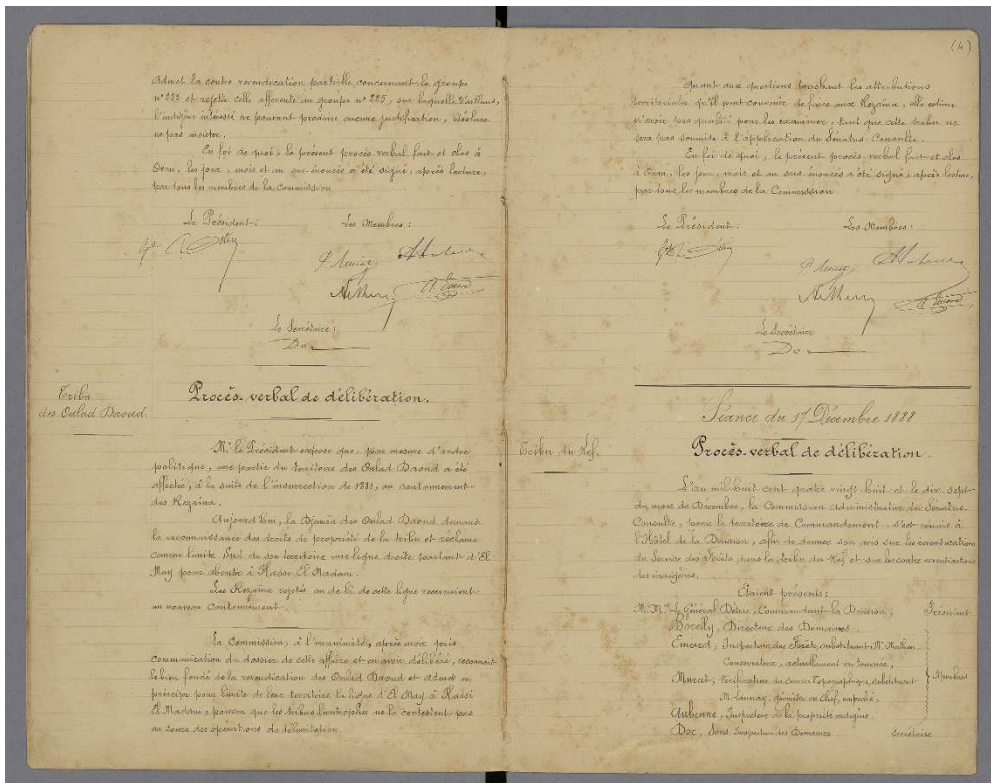 admet la contre revendication partielle concernant le groupe
n° 222 et rejette celle afférente au groupe n° 225, sur laquelle d'ailleurs,
l'indigène intéressé ne pouvant produire aucune justification, déclare
ne pas insister.
En foi de quoi, le présent procès verbal fait et clos à
Oran, les jour, mois et an sus énoncés a été signé, après lecture,
par tous les membres de la Commission
Le Président: Les Membres:
Le Secrétaire:
Doz
Tribu
des Oulad Daoud.
Procès-verbal de délibération.
Mr le Président expose que, par mesure d'ordre
politique, une partie du territoire des Oulad Daoud a été
affectée, à la suite de l'insurrection de 1881, au cantonnement
des Rezaïna.
Aujourd'hui, la Djemâa des Oulad Daoud demande
la reconnaissance des droits de propriété de la tribu et réclame
comme limite Sud de son territoire une ligne droite partant d'El
May pour aboutir à Hassi El Madani.
Les Rezaïna rejetés au delà de cette ligne recevraient
un nouveau cantonnement.
La Commission, à l'unanimité, après avoir pris
communication du dossier de cette affaire et en avoir délibéré, reconnait
le bien fondé de la revendication des Oulad Daoud et admet en
principe pour limite de leur territoire la ligne d'El May à Hassi
El Madani, pourvu que les tribus limitrophes ne la contestent pas
au cours des opérations de délimitation.
(4)
Quant aux questions touchant les attributions
territoriales qu'il peut convenir de faire aux Rezaïna, elle estime
n'avoir pas qualité pour les examiner, tant que cette tribu ne
sera pas soumise à l'application du Sénatus-Consulte.
En foi de quoi, le présent procès-verbal fait et clos
à Oran, les jour, mois et an sus énoncés a été signé, après lecture,
par tous les membres de la Commission
Le Président. Les Membres:
Le Secrétaire
Doz
Séance du 17 Décembre 1888
Tribu du Kef.
Procès-verbal de délibération.
L'an mil huit cent quatre vingt huit et le dix-sept
du mois de Décembre, la Commission administrative du Sénatus-
Consulte, pour le territoire de Commandement, s'est réunie à
l'Hôtel de la Division, afin de donner son avis sur les revendications
du Service des Forêts dans la tribu du Kef et sur les contre revendications
des indigènes.
Étaient présents:
M.M. le Général Détrie, Commandant la Division, Président
Directeur des Domaines.
Inspecteur des Forêts, substituant Mr Mathieu
Conservateur, actuellement en tournée,
Murat, Vérificateur du Service Topographique, substituant
M. Launay, Géomètre en Chef, empêché, Membres
Aubenne, Inspecteur de la propriété indigène.
Doz, Sous Inspecteur des Domaines Secrétaire